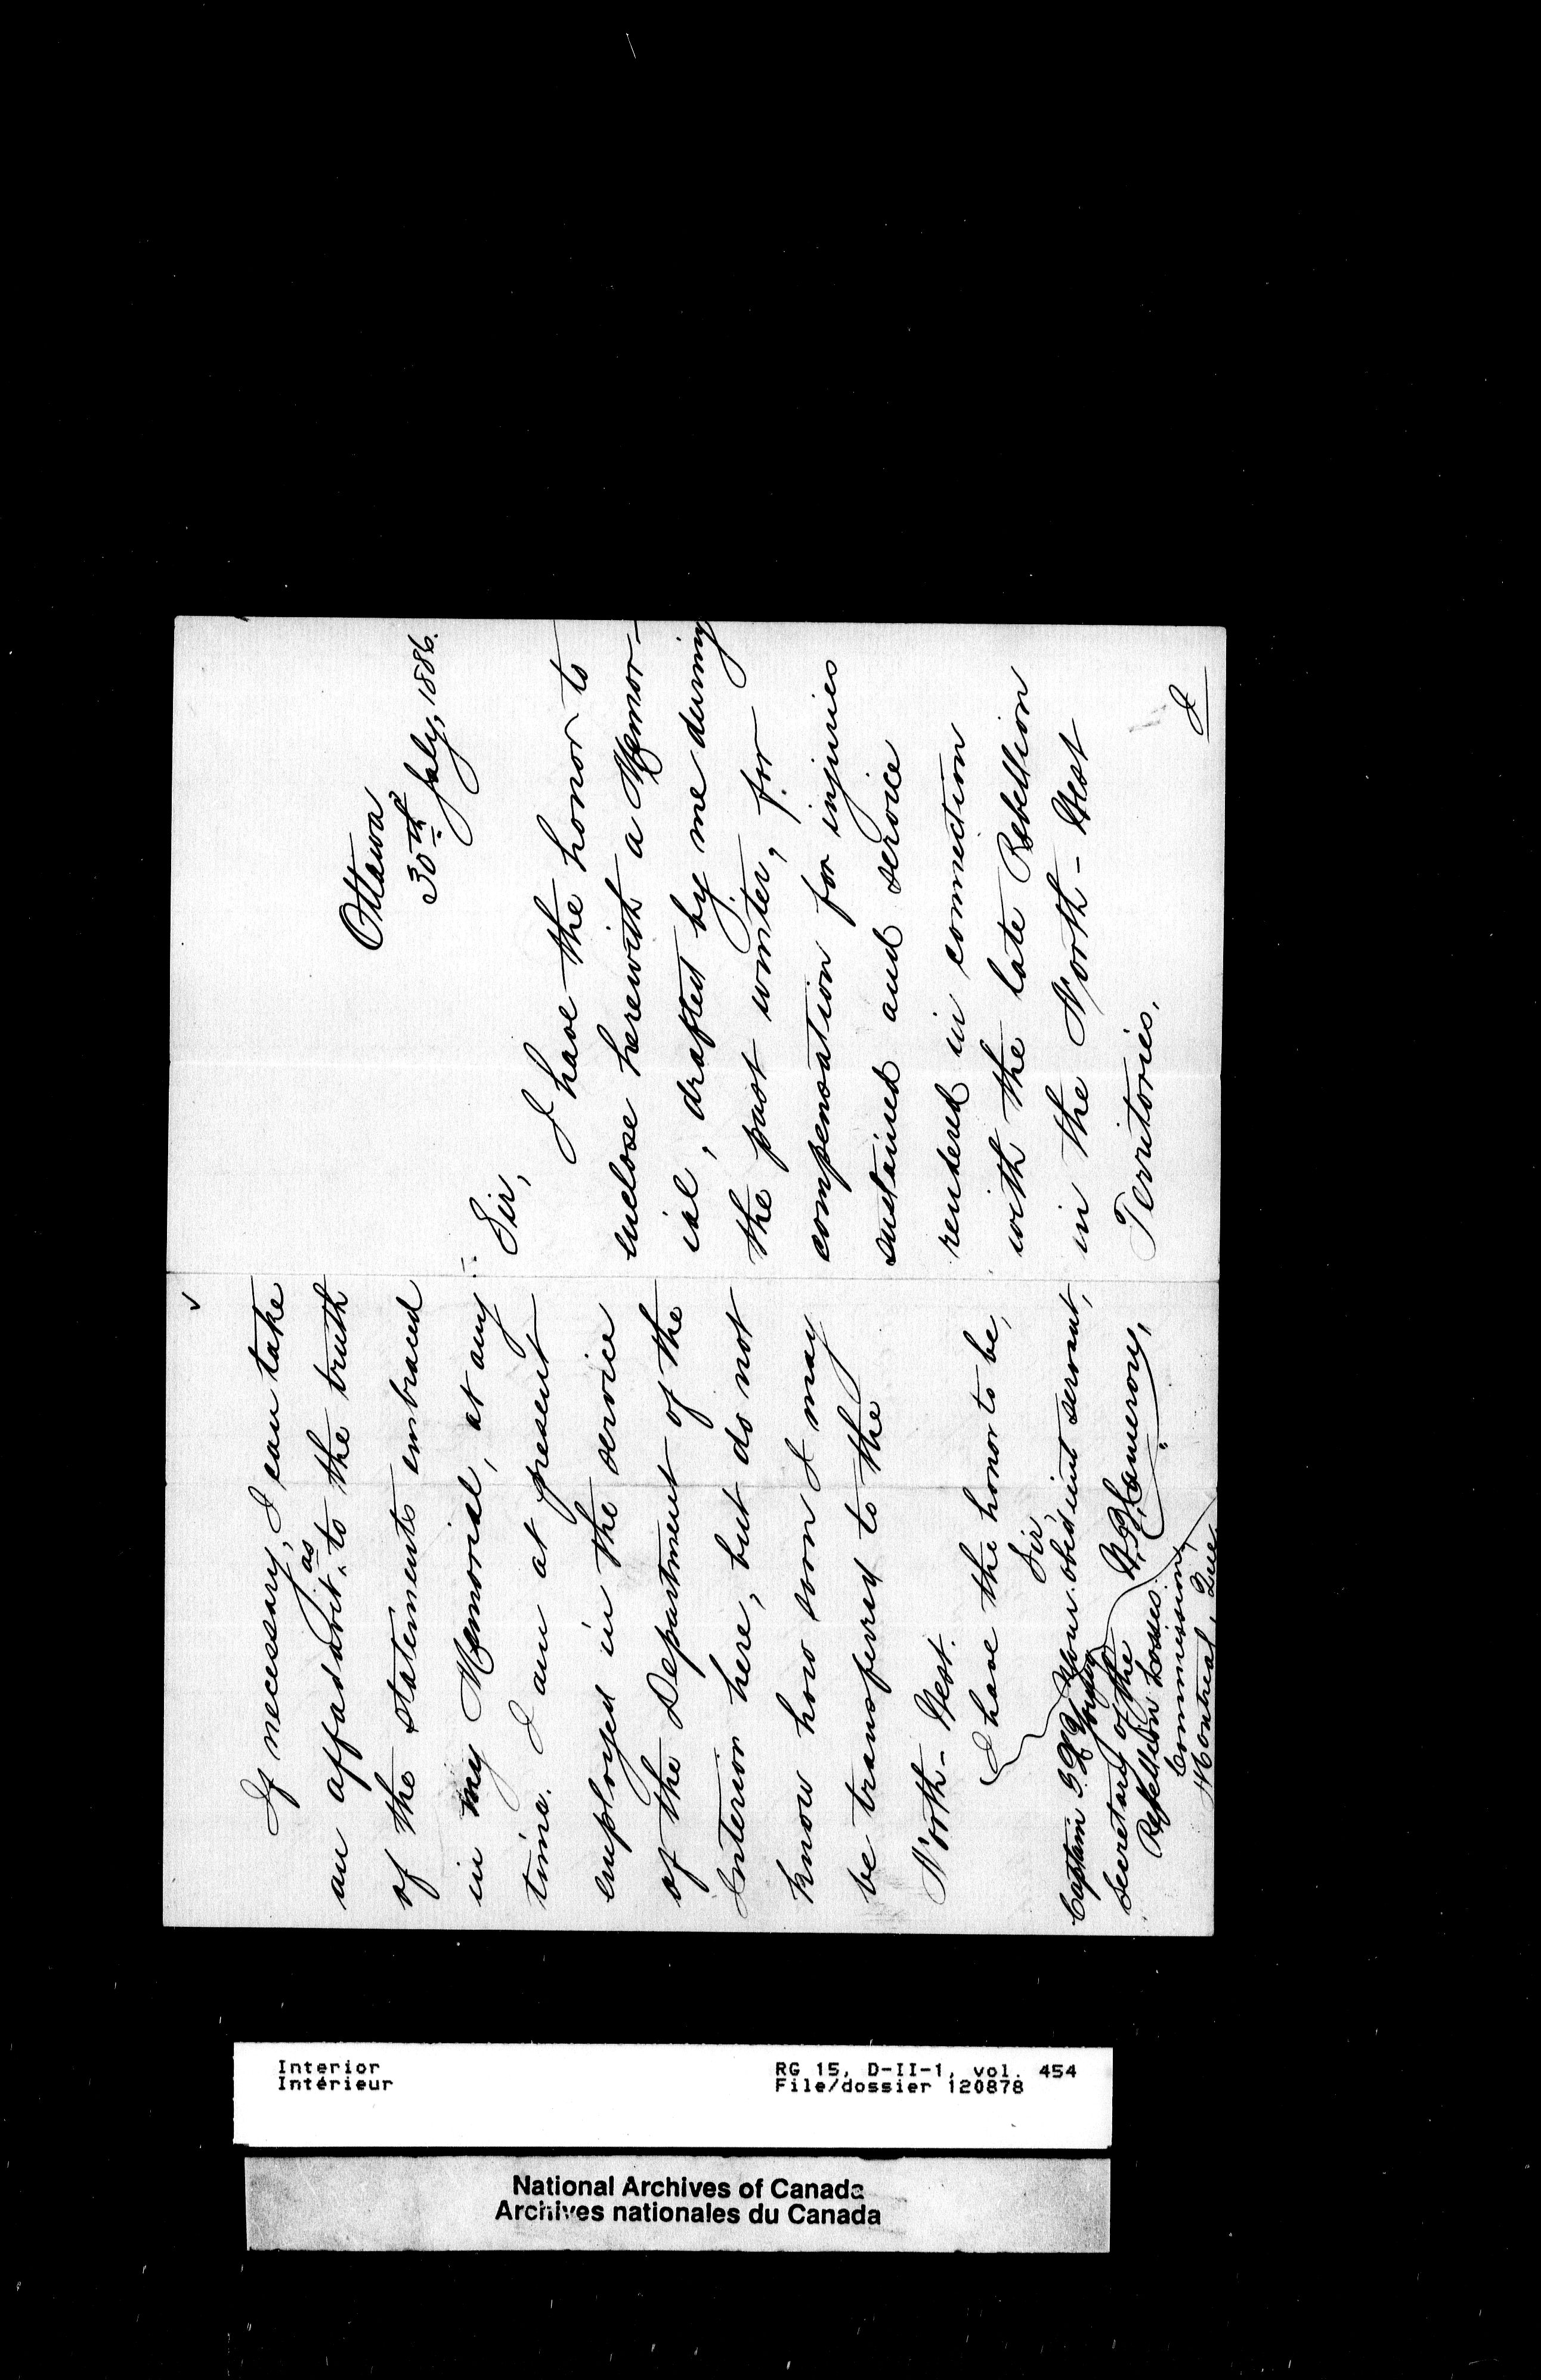 Ottawa
30th July, 1886.
Sir,
I have the honor to
enclose herewith a Memor-
ial, drafted by me during
the past winter, for
compensation for injuries
sustained and service
rendered in connection
with the late Rebellion
in the North-West
Territories.
I
If necessary, I can take
an affadavit as to the truth
of the statements embraced
in my Memorial, at any
time. I am at present
employed in the service
of the Department of the
Interior here, but do not
know how soon I may
be transferred to the
North-West.
I have the honor to be,
Sir,
Your obedient servant,
Cameron,
Captain Young
Secretary of the
Rebellion Losses
Commission,
Montreal, Que.
Interior
Intérieur
RG 15, D-II-1, vol. 454
File/dossier 120878
National Archives of Canada
Archives nationales du Canada